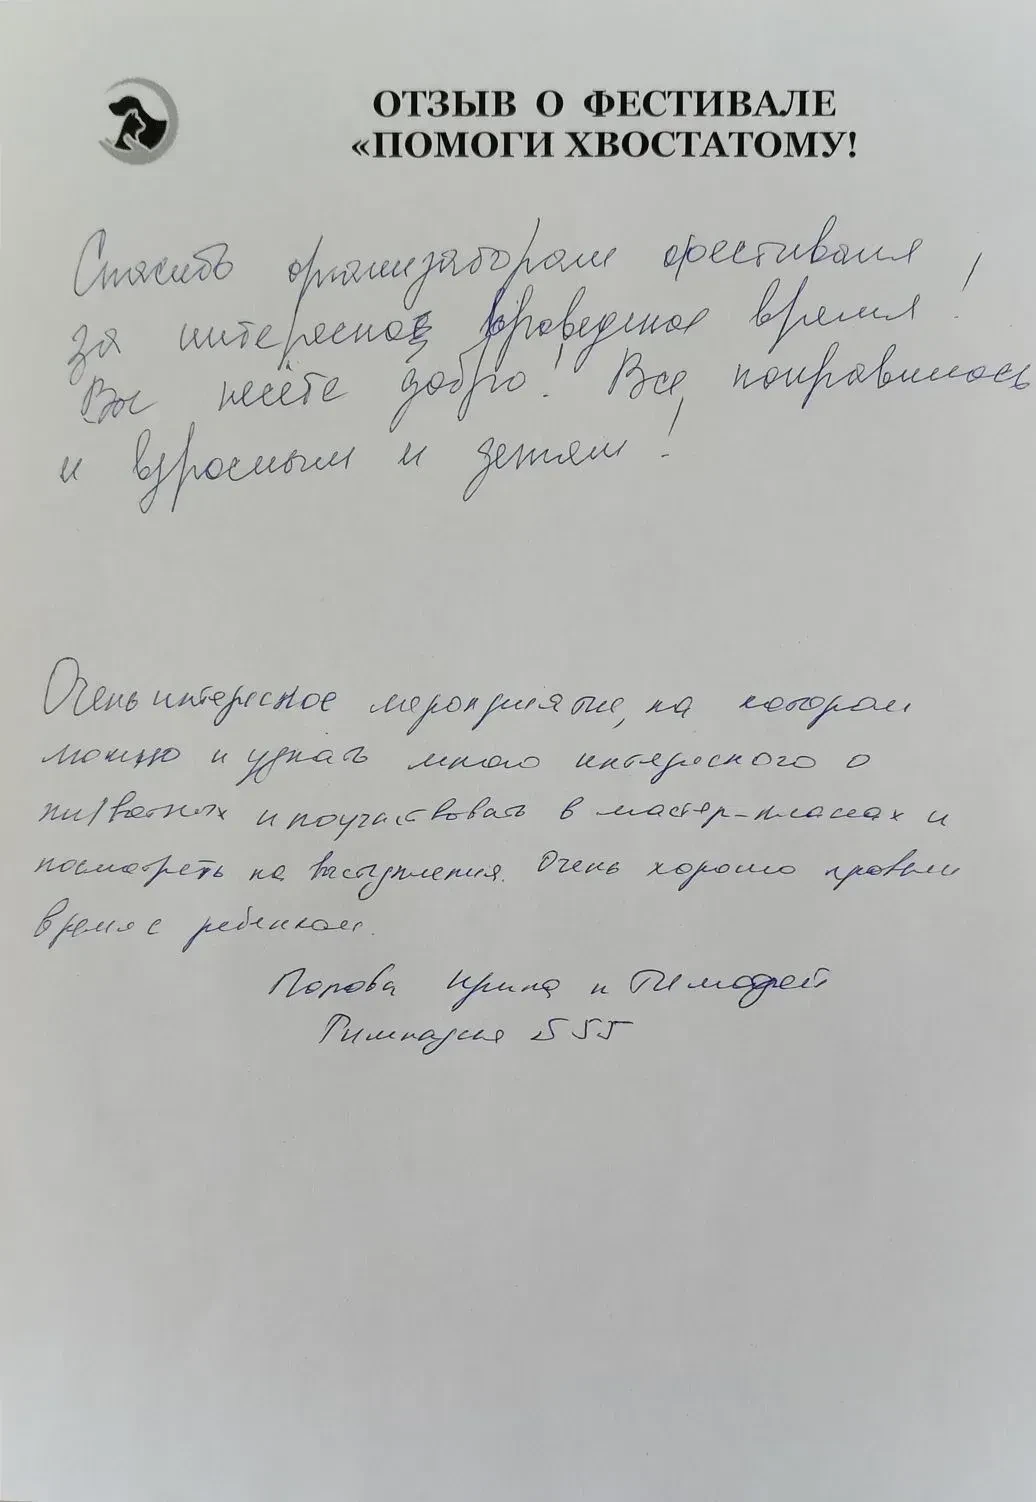 ОТЗЫВ О ФЕСТИВАЛЕ
«ПОМОГИ ХВОСТАТОМУ!
Спасибо организаторам фестиваля
за интересно проведеное время!
Вы несёте добро! Все понравилось
и взрослым и детям!
Очень интересное мероприятие, на котором
можно и узнать много интересного о
животных и поучаствовать в мастер-классах и
посмотреть на выступления. Очень хорошо провели
время с ребенком.
Попова Ирина и Тимофей
Гимназия 555